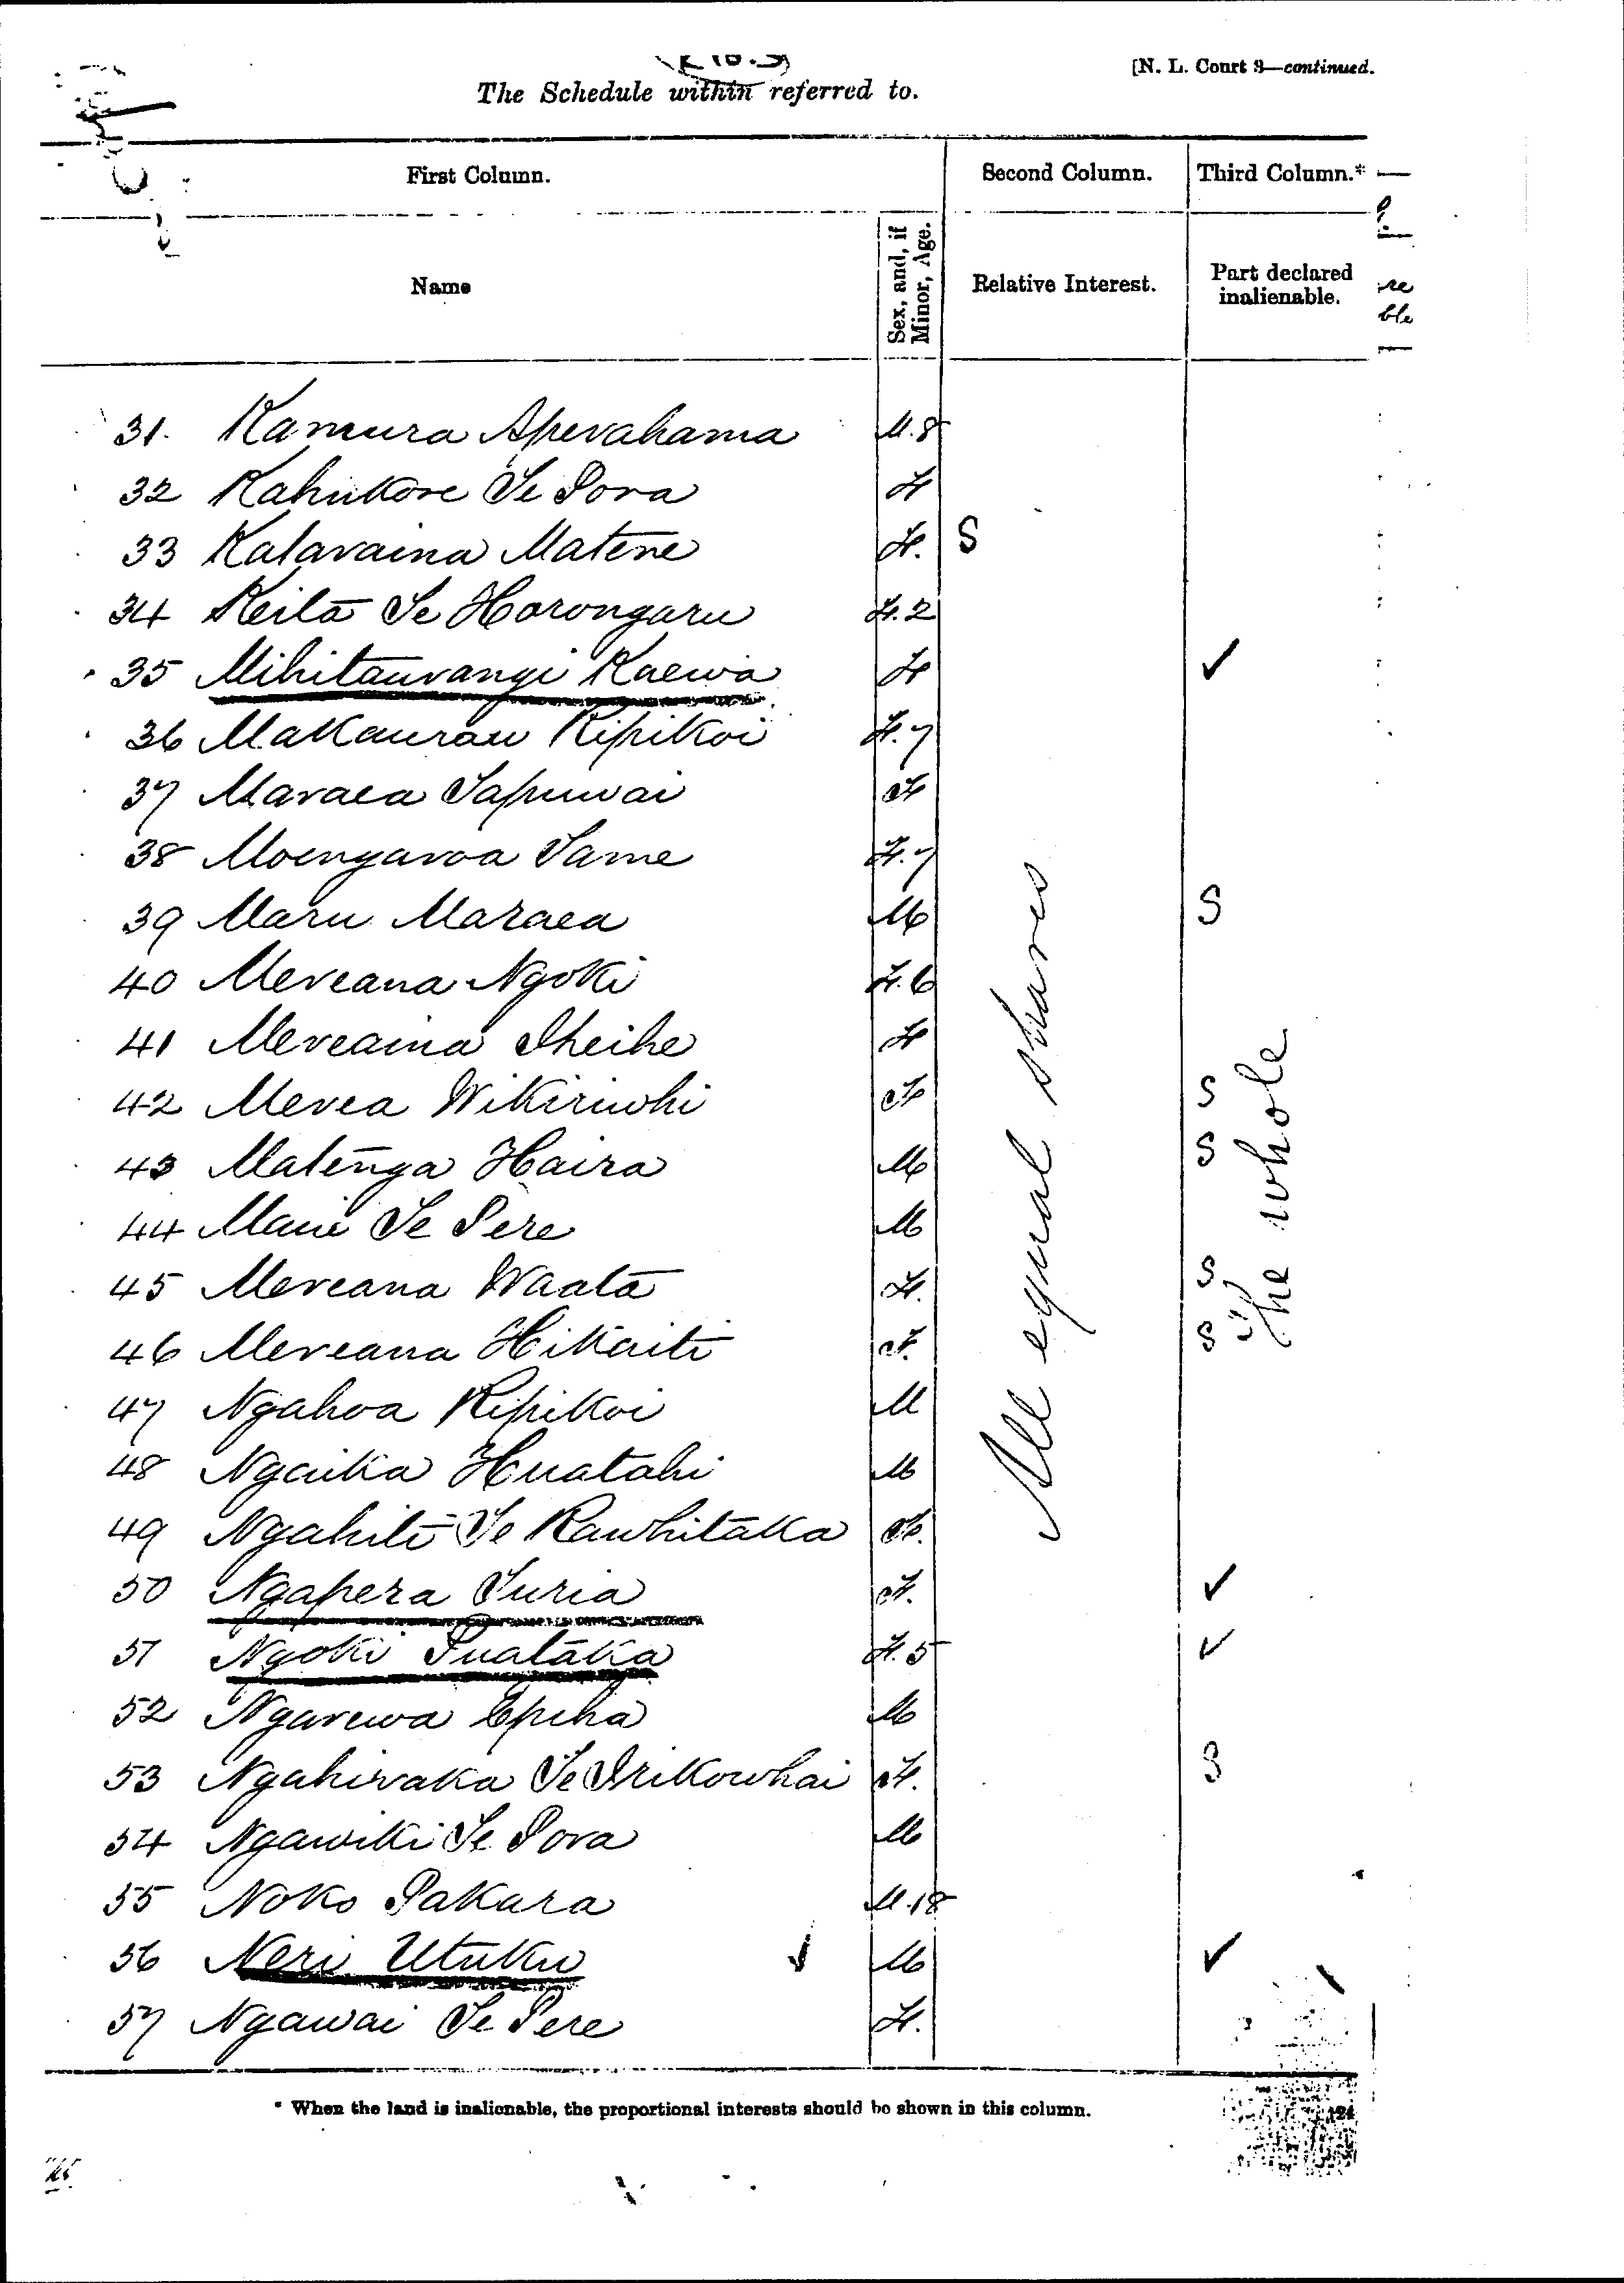 [N. L. Court 8—continued.
The Schedule within referred to.
First Column. Second Column. Third Column.*
Name Sex, and, if Minor, Age. Relative Interest. Part declared inalienable.
re
ble
31. Kamura Aperahama M. 8
32 Kahukore Te Pora F
33 Kataraina Matene F. S
34 Keita Te Horongaru F. 2
35 Mihitaurangi Kaewa F ✓
36 Makaurau Ripikoi F. 7
37 Maraea Tapuwai F
38 Moengaroa Tame F. 7
39 Maru Maraea M S
40 Mereana Ngoki F. 6
41 Mereaina Iheihe F
42 Merea Wikiriwhi F S
43 Matenga Haira M S
44 Maui Te Pere M
45 Mereana Waata F. S
46 Mereana Hikaiti F. S
47 Ngahoa Ripikoi M
48 Ngaika Huatahi M
49 Ngahiti Te Rawhitaka F.
50 Ngapera Turia F. ✓
51 Ngoki Puataka F. 5 ✓
52 Ngarewa Epiha M
53 Ngahiraka Te Irikowhai F. S
54 Ngawiki Te Pora M
55 Noko Pakara M. 18
56 Neri Utuku M ✓
57 Ngawai Te Pere F.
All equal shares
The whole
* When the land is inalienable, the proportional interests should be shown in this column.
124